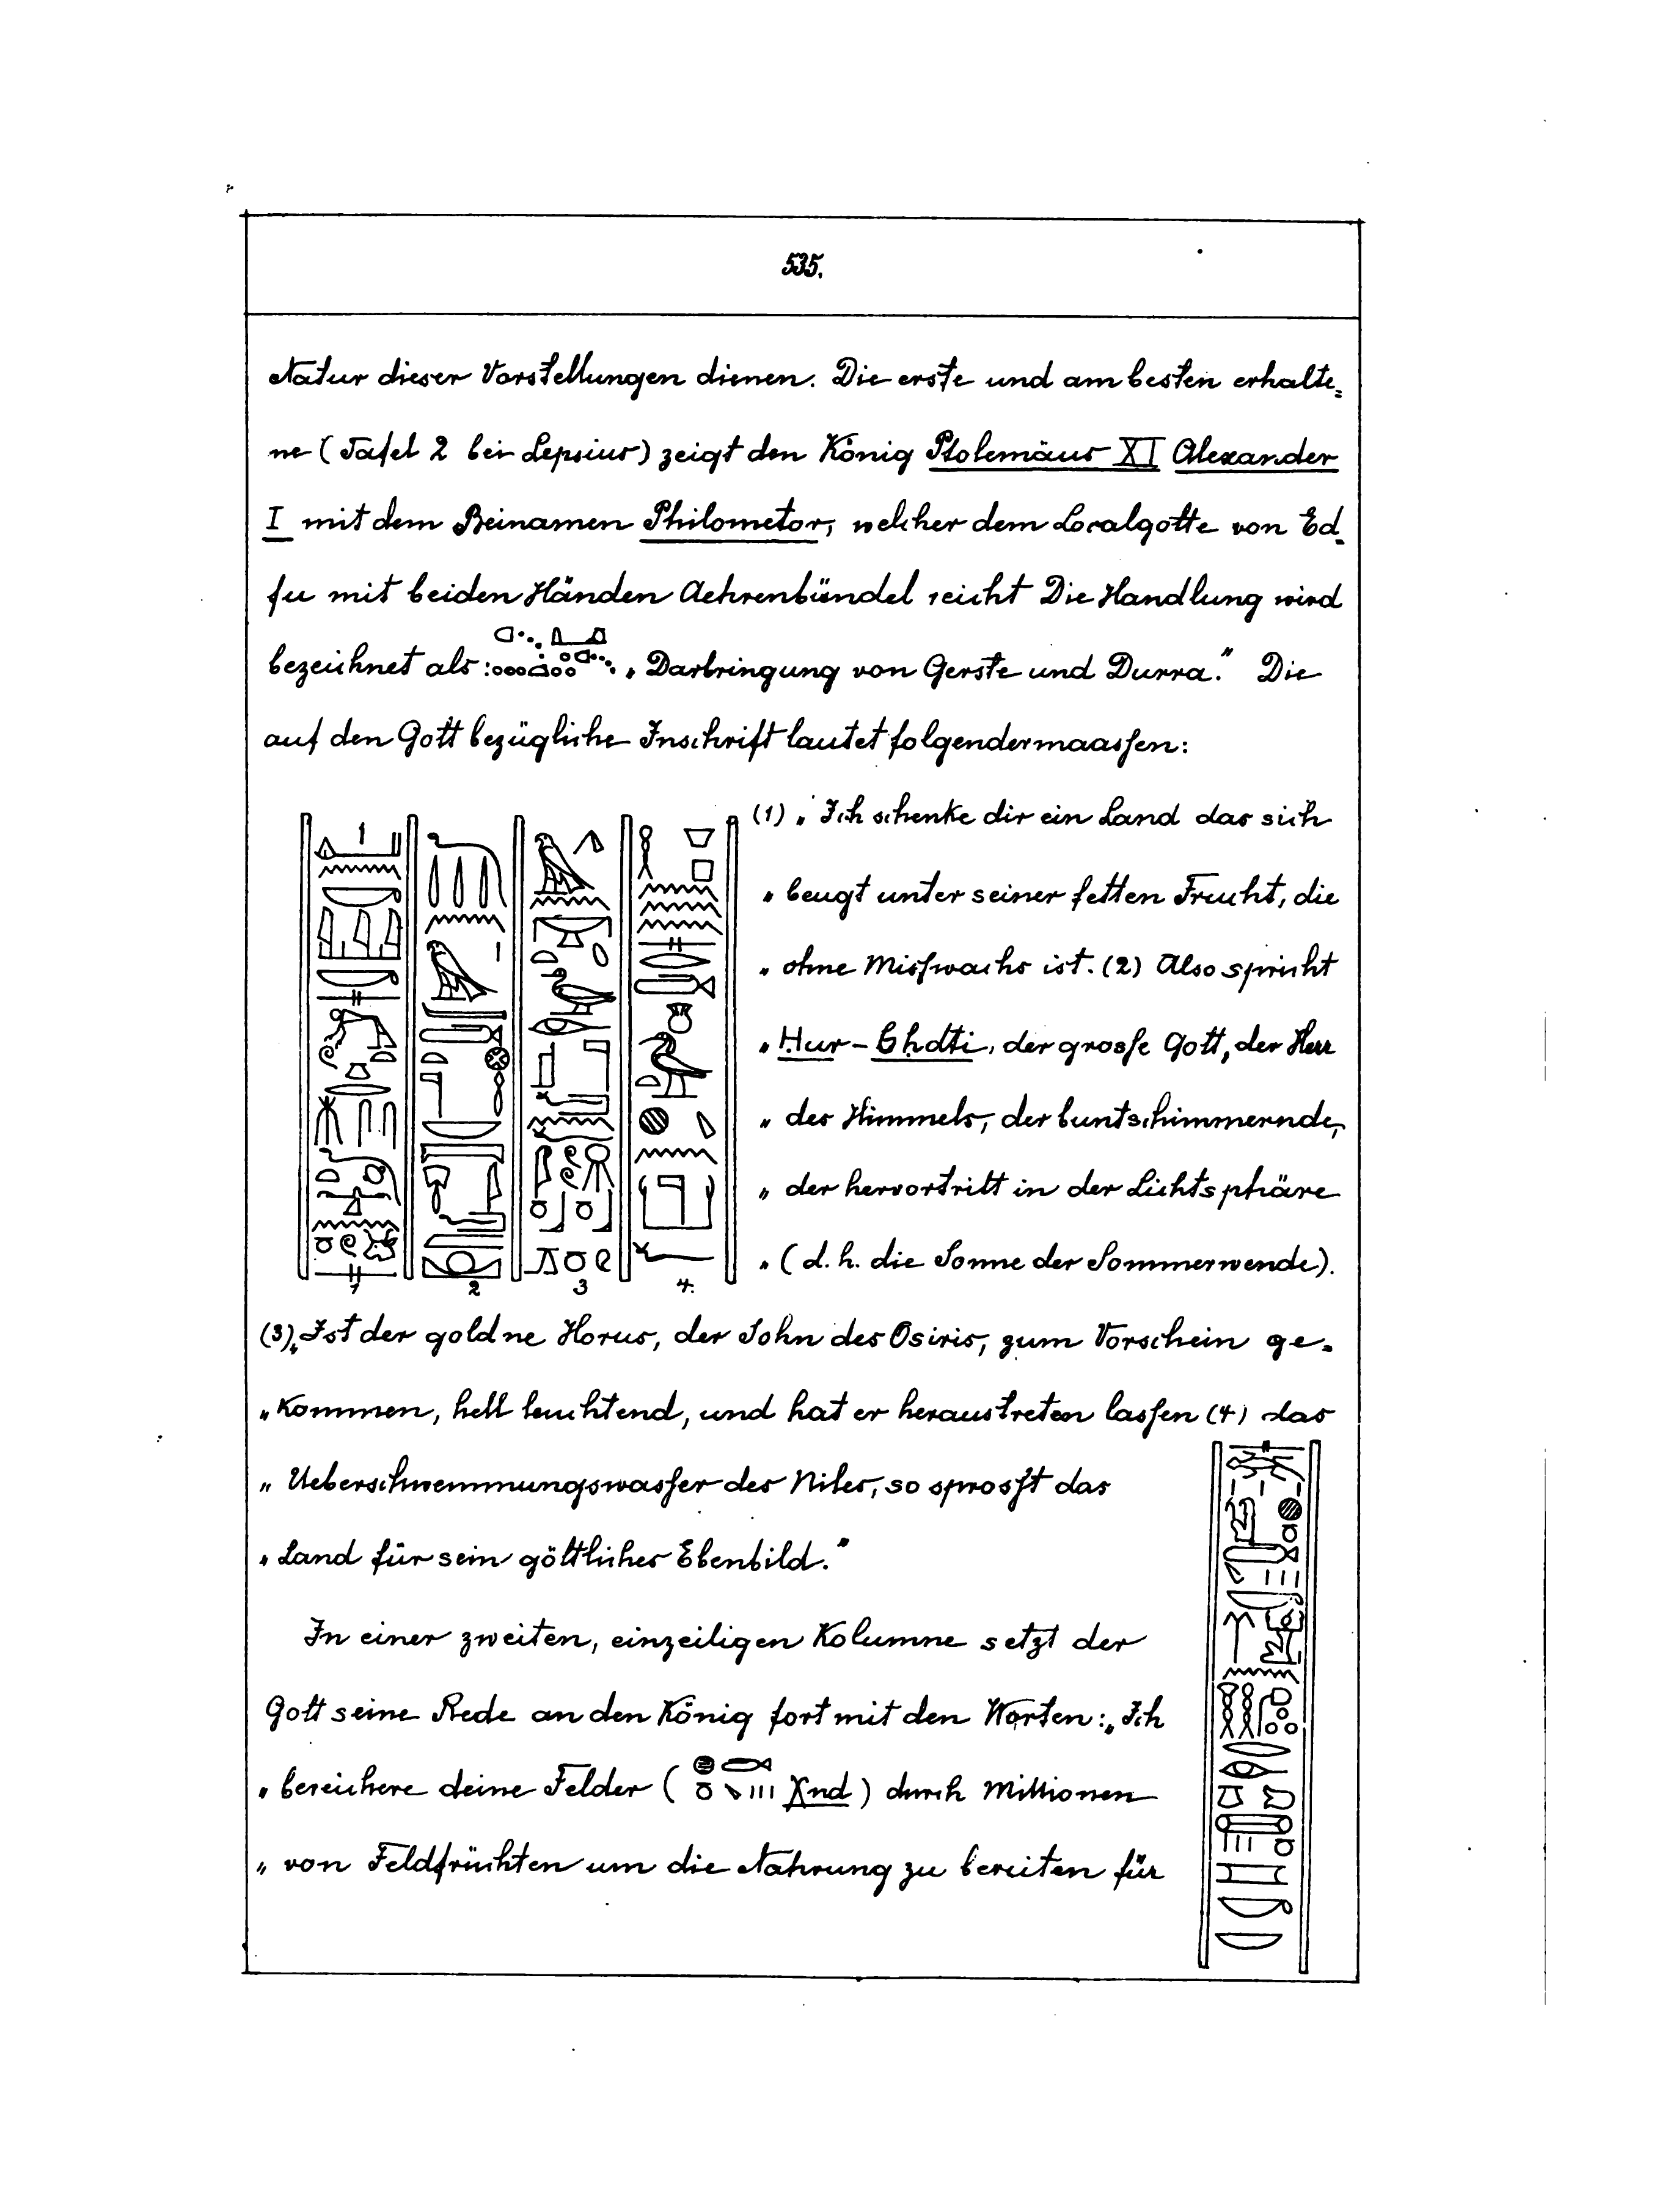 535.
Natur dieser Vorstellungen dienen. Die erste und am besten erhalte-
ne (Tafel 2 bei Lepsius) zeigt den König Ptolemäus XI Alexander
I mit dem Beinamen Philometor, welcher dem Localgotte von Ed-
fu mit beiden Händen Aehrenbündel reicht Die Handlung wird
bezeichnet als: „Darbringung von Gerste und Durra." Die
auf den Gott bezügliche Inschrift lautet folgendermaassen:
(1) „Ich schenke dir ein Land das sich
„beugt unter seiner fetten Frucht, die
„ohne Misswachs ist. (2) Also spricht
„Hur-Bhdti, der grosse Gott, der Herr
„des Himmels, der buntschimmernde,
„der hervortritt in der Lichtsphäre
„(d. h. die Sonne der Sommerwende).
1 2 3 4.
(3) „Ist der goldne Horus, der Sohn des Osiris, zum Vorschein ge-
„kommen, hell leuchtend, und hat er heraustreten lassen (4) das
„Ueberschwemmungswasser des Niles, so sprosst das
„Land für sein göttliches Ebenbild."
In einer zweiten, einzeiligen Kolumne setzt der
Gott seine Rede an den König fort mit den Worten: „Ich
„bereichere deine Felder ( Χnd) durch Millionen
„von Feldfrüchten um die Nahrung zu bereiten für